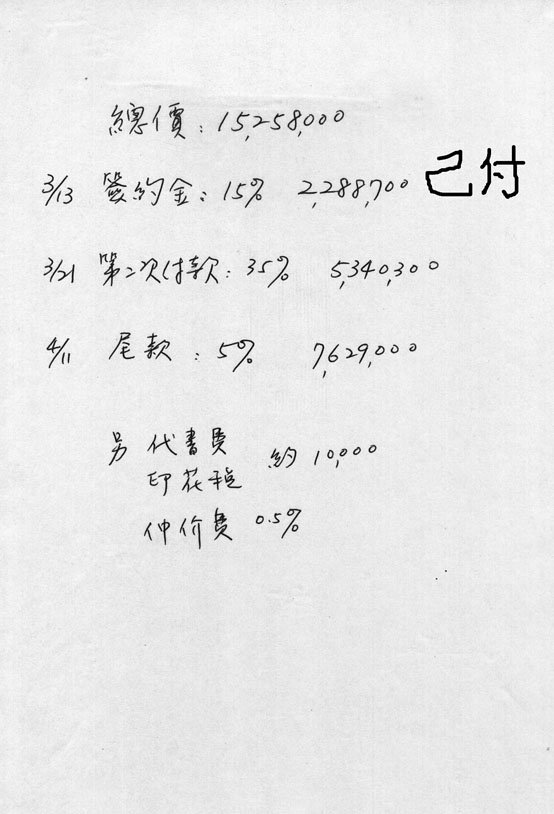 總價：15,258,000
3/13 簽約金：15% 2,288,700 已付
3/21 第二次付款：35% 5,340,300
4/11 尾款：5% 7,629,000
另 代書費 約 10,000
印花稅
仲价費 0.5%